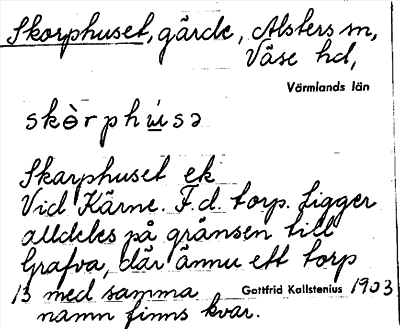 Skorphuset, gärde, Alsters sn,
Väse hd,
Värmlands län
skɵ̀rphu̇sə
Skarphuset ek
Vid Kärne. F.d. torp. Ligger
alldeles på gränsen till
Grafva, där ännu ett torp
13 med samma Gottfrid Kallstenius 1903
namn finns kvar.